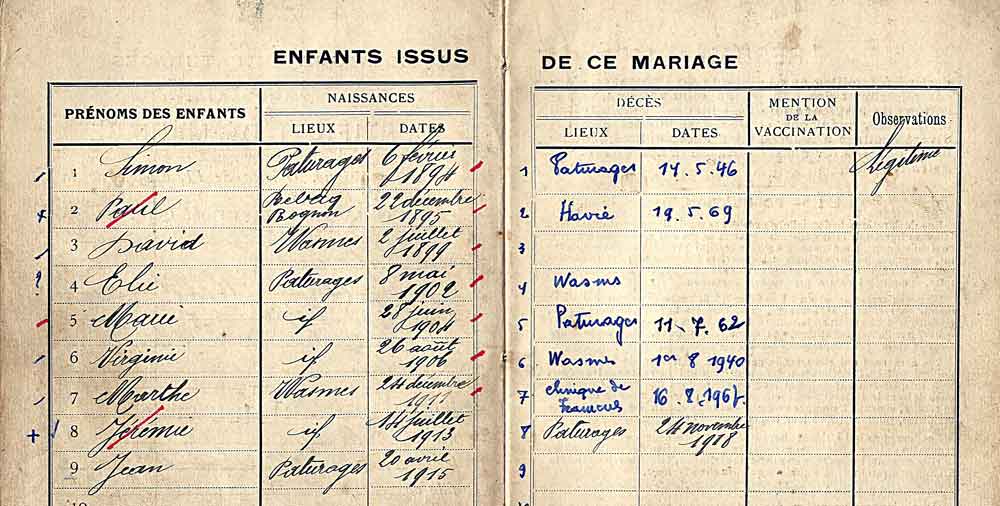 ENFANTS ISSUS DE CE MARIAGE
PRÉNOMS DES ENFANTS
NAISSANCES
LIEUX DATES
DÉCÈS
LIEUX DATES
MENTION
DE LA
VACCINATION
Observations
1 Simon Paturages 6 février 1894
2 Paul 22 décembre 1895
3 David Wasmes 2 juillet 1899
? 4 Elie Paturages 8 mai 1902
5 Marie if 28 juin 1904
6 Virginie if 26 août 1906
7 Marthe Wasmes 24 décembre
+ 8 Jérémie if 14 juillet 1913
9 Jean Paturages 20 avril 1915
1 Paturages 14.5.46 Légitime
2 Havré 19.5.69
3
4 Wasmes
5 Paturages 11.7.62
6 Wasmes 1er 8 1940
7 clinique de 16.8.196
8 Paturages 24 novembre 1918
9